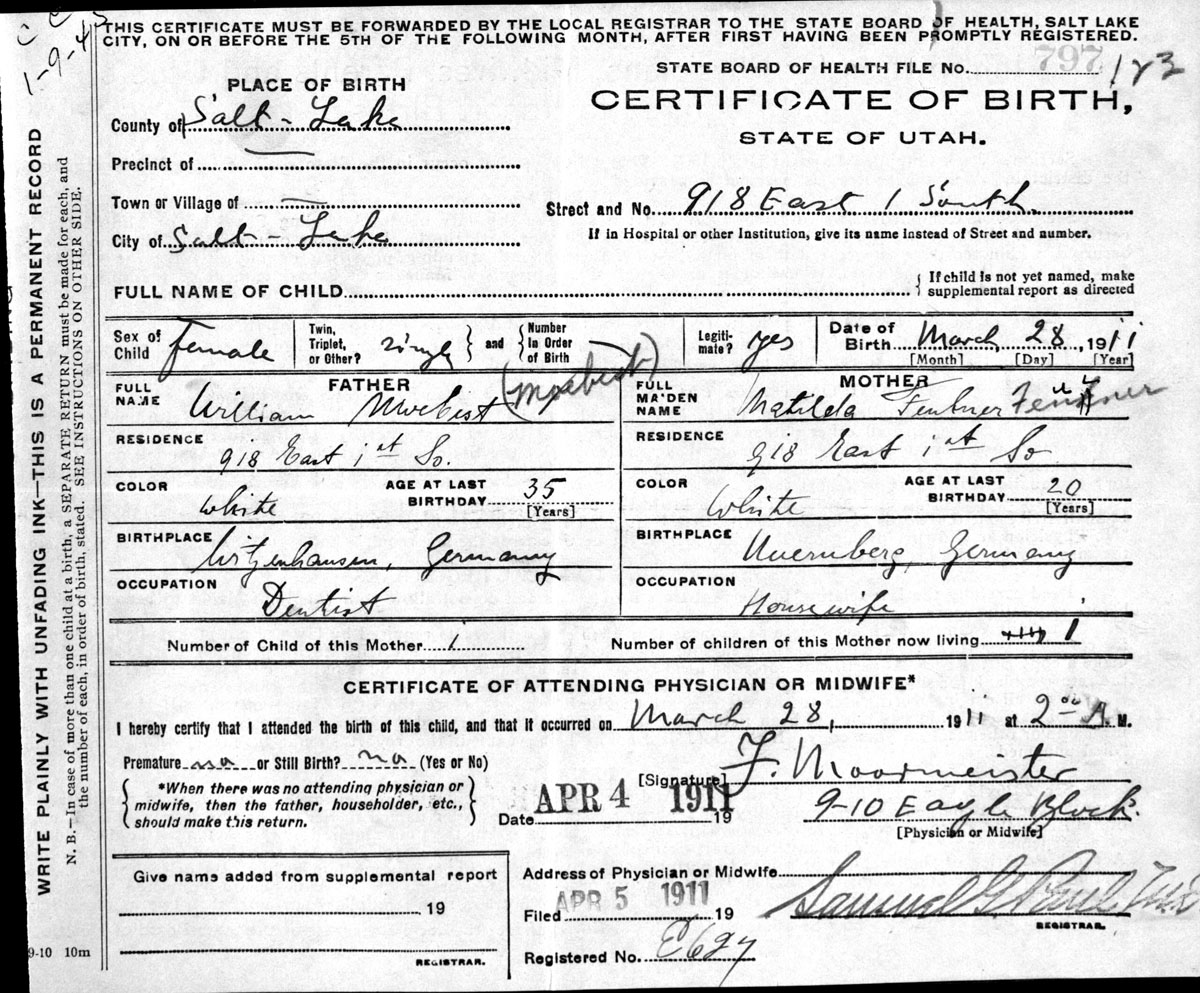 C C
1-9-45
THIS CERTIFICATE MUST BE FORWARDED BY THE LOCAL REGISTRAR TO THE STATE BOARD OF HEALTH, SALT LAKE
CITY, ON OR BEFORE THE 5TH OF THE FOLLOWING MONTH, AFTER FIRST HAVING BEEN PROMPTLY REGISTERED.
STATE BOARD OF HEALTH FILE No. 797 123
PLACE OF BIRTH
CERTIFICATE OF BIRTH,
STATE OF UTAH.
County of Salt-Lake
Precinct of
Town or Village of
City of Salt-Lake
Street and No. 918 East 1 South.
If in Hospital or other Institution, give its name instead of Street and number.
FULL NAME OF CHILD
If child is not yet named, make
supplemental report as directed
Sex of Child Female
Twin, Triplet, or Other? single
and Number In Order of Birth
Legiti-mate? yes
Date of Birth March, 28, 1911
[Month] [Day] [Year]
FATHER
FULL NAME William Moebest (Moebest)
RESIDENCE
918 East 1st So.
COLOR White
AGE AT LAST BIRTHDAY 35
[Years]
BIRTHPLACE Witzenhausen, Germany
OCCUPATION
Dentist
MOTHER
FULL MAIDEN NAME Matilda Feubner
RESIDENCE
918 East 1st So
COLOR White
AGE AT LAST BIRTHDAY 20
[Years]
BIRTHPLACE Nuernberg, Germany
OCCUPATION
Housewife
Number of Child of this Mother 1
Number of children of this Mother now living 1
CERTIFICATE OF ATTENDING PHYSICIAN OR MIDWIFE*
I hereby certify that I attended the birth of this child, and that it occurred on March 28, 1911 at 2 00 A. M.
Premature no or Still Birth? no (Yes or No)
*When there was no attending physician or
midwife, then the father, householder, etc.,
should make this return.
[Signature] F. Moormeister
Date APR 4 1911 19
9-10 Eagle Block.
[Physician or Midwife]
Give name added from supplemental report
19
REGISTRAR.
9-10 10m
Address of Physician or Midwife
Filed APR 5 1911 19
Samuel G. Paul
REGISTRAR.
Registered No. E627
WRITE PLAINLY WITH UNFADING INK—THIS IS A PERMANENT RECORD
N. B.—In case of more than one child at a birth, a SEPARATE RETURN must be made for each, and
the number of each, in order of birth, stated. SEE INSTRUCTIONS ON OTHER SIDE.